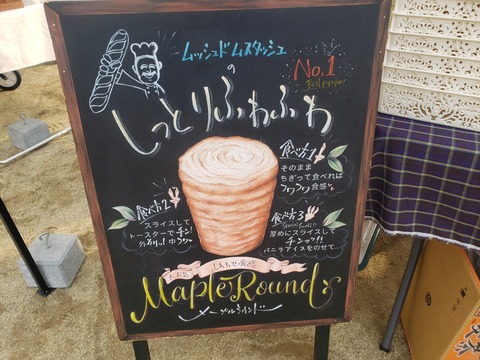 ムッシュドムスタッシュ
の
No.1
しっとりふわふわ
食べ方1
そのまま
ちぎって食べれば
フワフワ食感
食べ方2
スライスして
トースターでチン!
外カリッ! 中フワッ
食べ方3
厚めにスライスして
チンッ!!
バニラアイスをのせて…
大人気
しあわせ食感
Maple Round
メープルラウンド